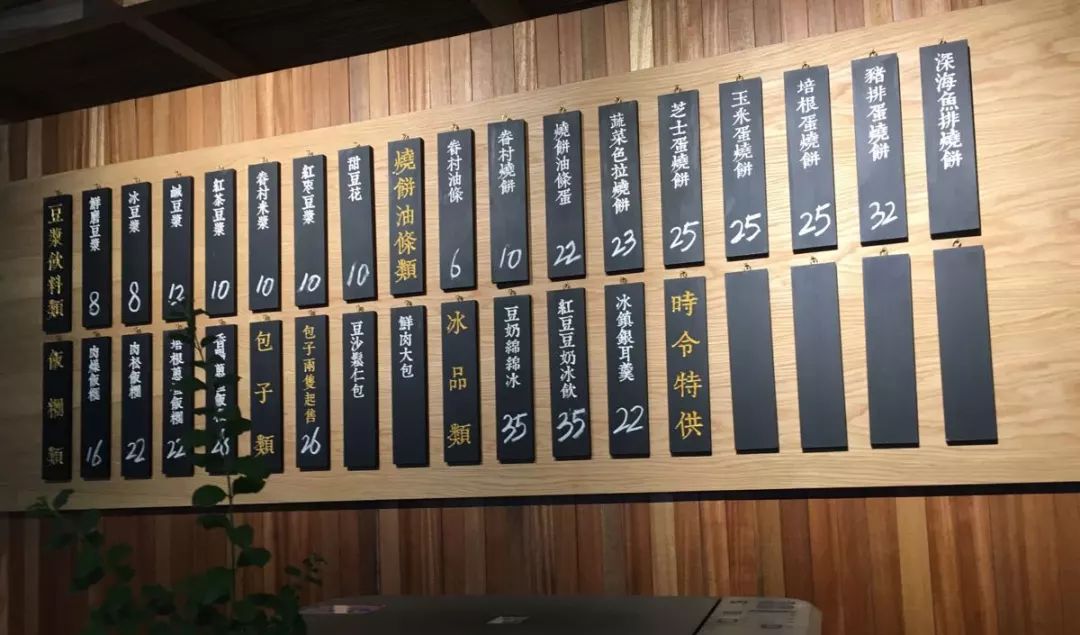 豆漿飲料類
鮮磨豆漿 8
冰豆漿 8
鹹豆漿 12
紅茶豆漿 10
眷村米漿 10
紅枣豆漿 10
甜豆花 10
燒餅油條類
眷村油條 6
眷村燒餅 10
燒餅油條蛋 22
蔬菜色拉燒餅 23
芝士蛋燒餅 25
玉米蛋燒餅 25
培根蛋燒餅 25
豬排蛋燒餅 32
深海魚排燒餅
飯糰類
肉燥飯糰 16
肉松飯糰 22
培根蔥飯糰 22
包子類
包子兩隻起售 26
豆沙鬆仁包
鮮肉大包
冰品類
豆奶綿綿冰 35
紅豆豆奶冰飲 35
冰鎮銀耳羹 22
時令特供